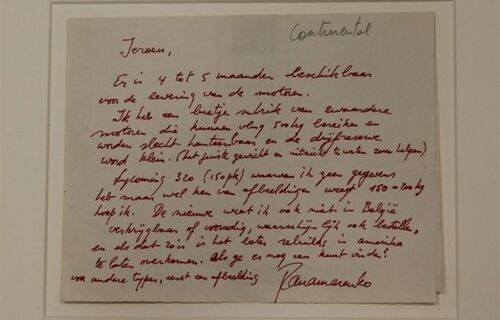 Continental
Jeroen,
Er is 4 tot 5 maanden beschikbaar
voor de levering van de motoren.
Ik heb een beetje schrik van zwaardere
motoren die kunnen vlug 500kg bereiken en
worden slecht hanteerbaar en de drijfreserve
word klein. (het juiste gewicht en uitzicht te weten zou helpen)
Lycoming 320 (150pk) waarvan ik geen gegevens
heb maar wel ken van afbeeldingen weegt 150-200kg
hoop ik. De nieuwe weet ik ook niet in België
verkrijgbaar of voorradig, waarschijnlijk ook bestellen,
en als dat zo is is het beter rebuilds in amerika
te laten overkomen. Als ge er nog een kunt vinden?
voor andere types, eerst een afbeelding
Panamarenko